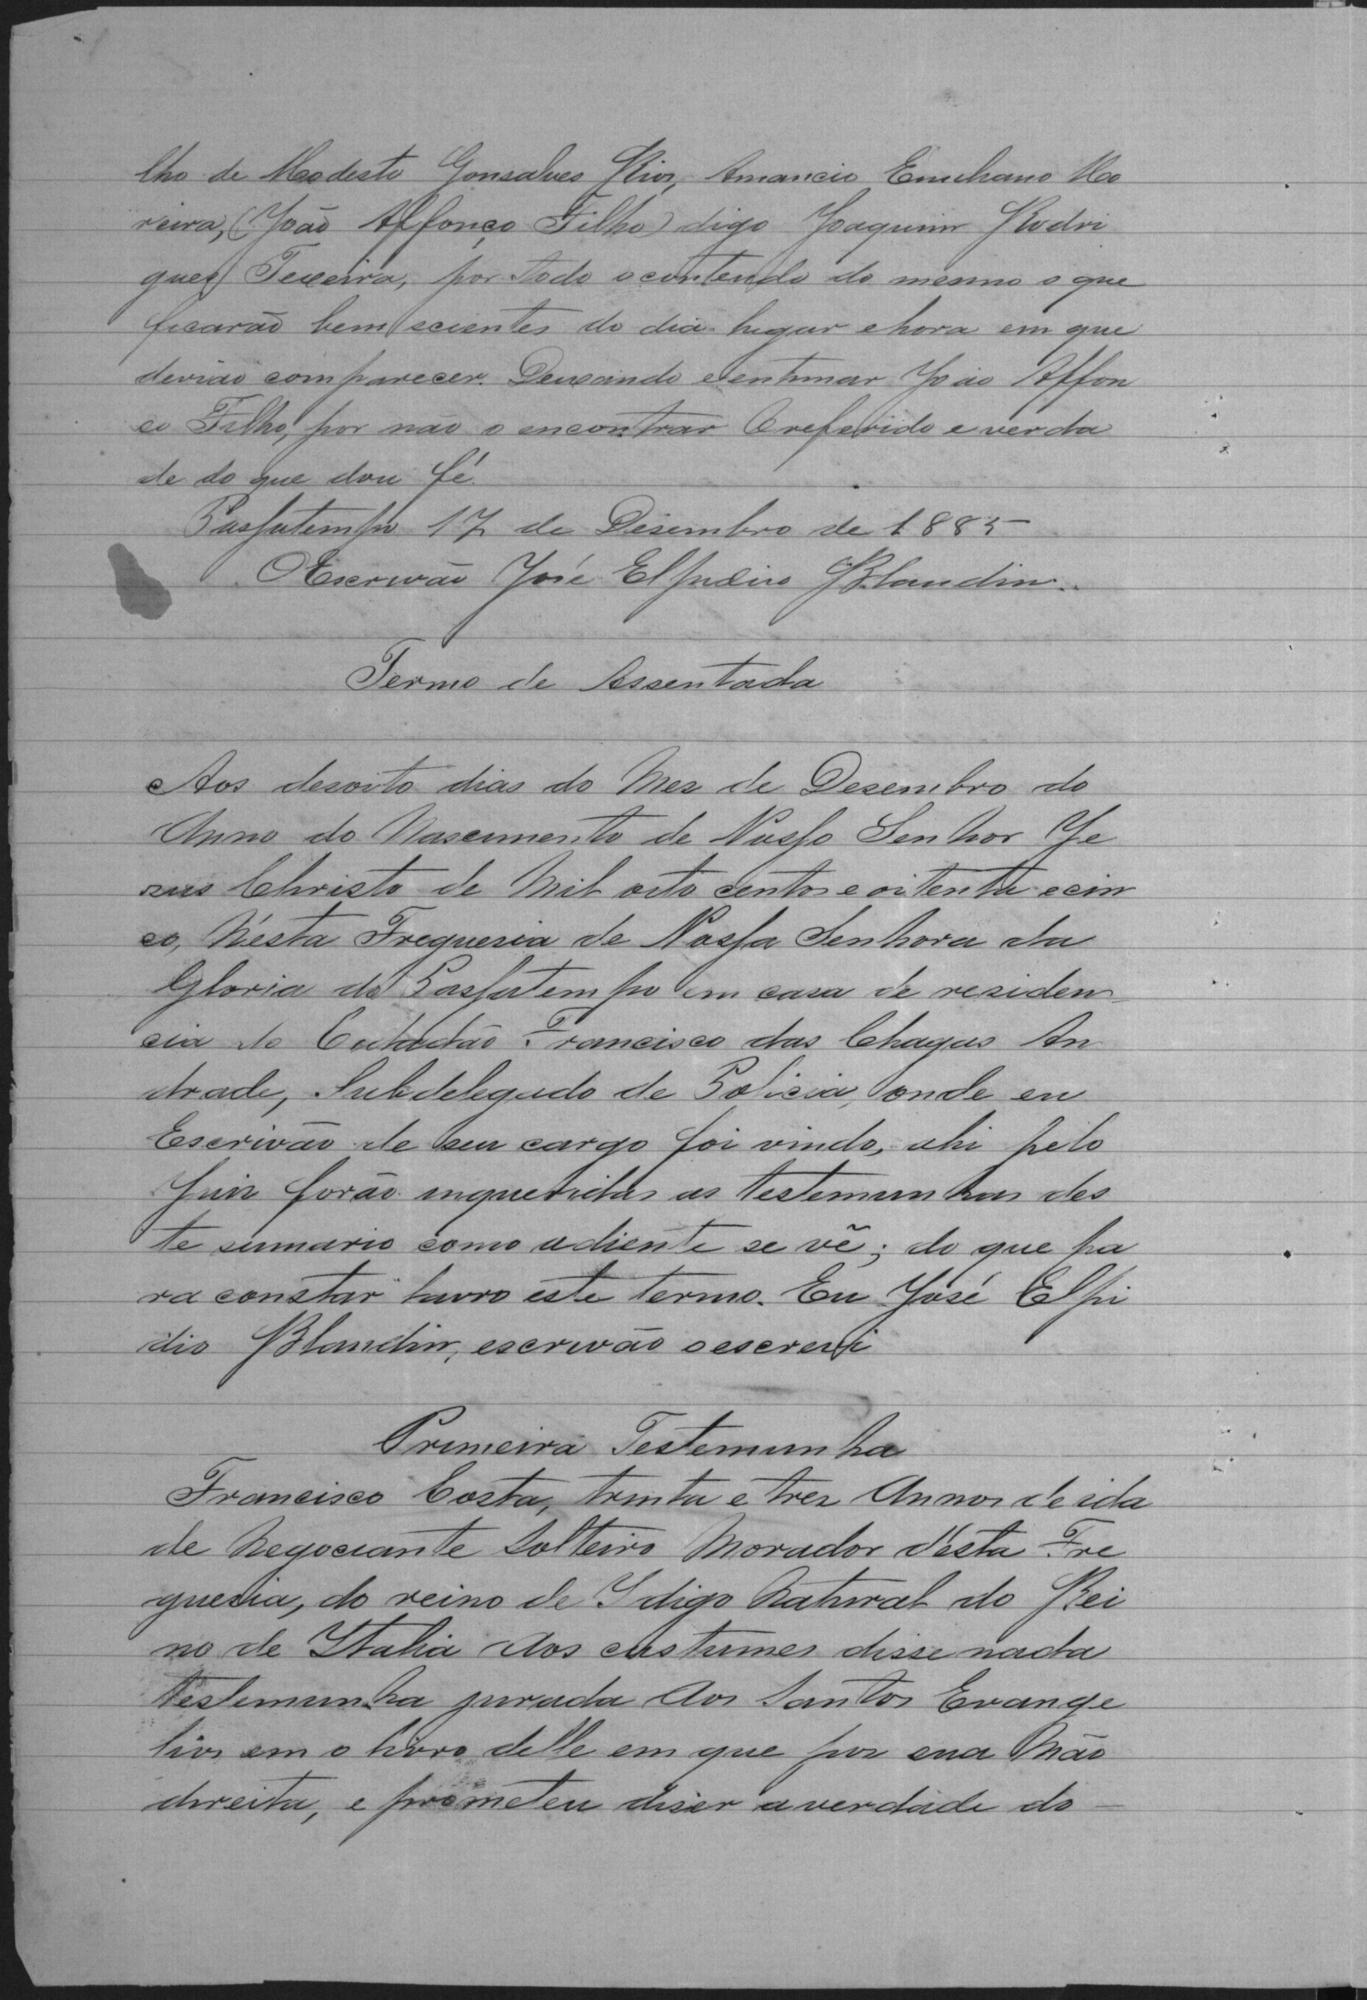 lho de Modesto Gonsalves Rios, Amancio Emiliano Mo
reira, (João Affonço Filho) digo Joaquim Rodri
gues Teixeira, por todo o contendo do mesmo o que
ficarão bem scientes do dia lugar e hora em que
devião comparecer. Deixando e entimar João Affon
co Filho, por não o encontrar O referido e verda
de do que dou fé.
Passatempo 17 de Desembro de 1885
O Escrivão José Elpidio Blandin.
Termo de Assentada
Aos desoito dias do Mez de Desembro do
Anno do Nascimento de Nosso Senhor Je
sus Christo de Mil oito centos e oitenta e cin
co, N'esta Freguesia de Nossa Senhora da
Gloria do Passatempo em casa de residen
cia do Cidadão Francisco das Chagas An
drade, Subdelegado de Policia, onde eu
Escrivão de seu cargo foi vindo, ahi pelo
Juiz forão inqueridas as testemunhas des
te sumario como adiente se vẽ; do que pa
ra constar lavro este termo. Eu José Elpi
dio Blandin, escrivão o escrevi
Primeira Testemunha
Francisco Costa, trinta e trez Annos de ida
de Negociante Solteiro Morador d'esta Fre
guesia, do reino de I digo Natural do Rei
no de Italia Aos custumes disse nada
testemunha jurada Aos Santos Evange
lios em o livro delle em que pos sua Mão
direita, e prometeu diser a verdade do